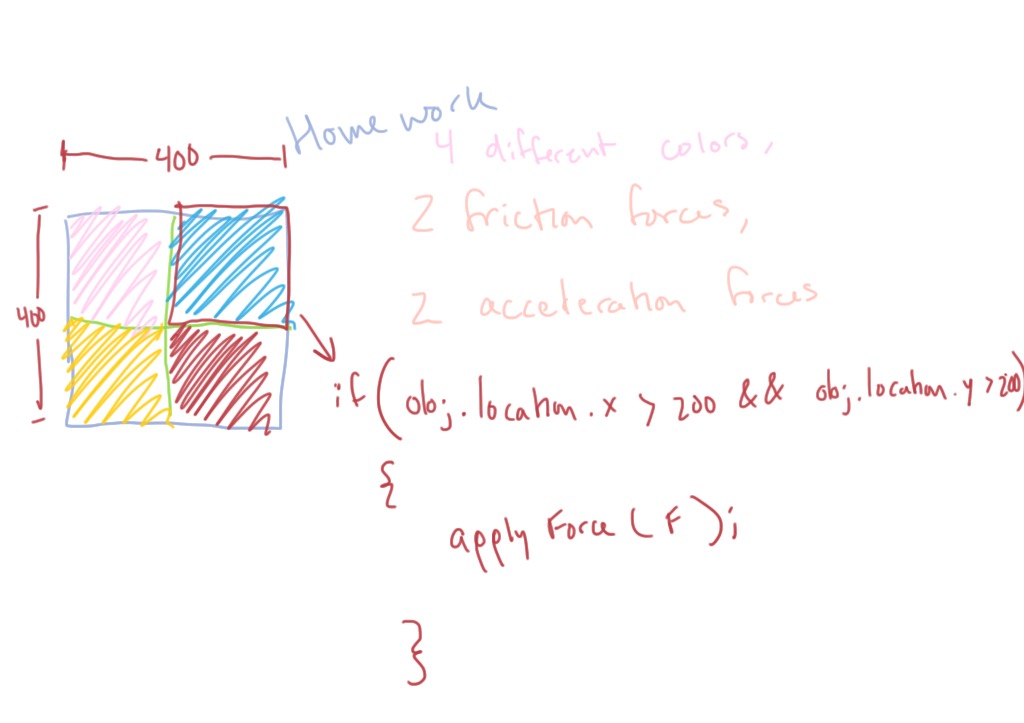 Homework
4 different colors,
400
2 friction forces,
2 acceleration forces
400
if (obj.location.x > 200 && obj.location.y > 200)
{
apply Force (F);
}